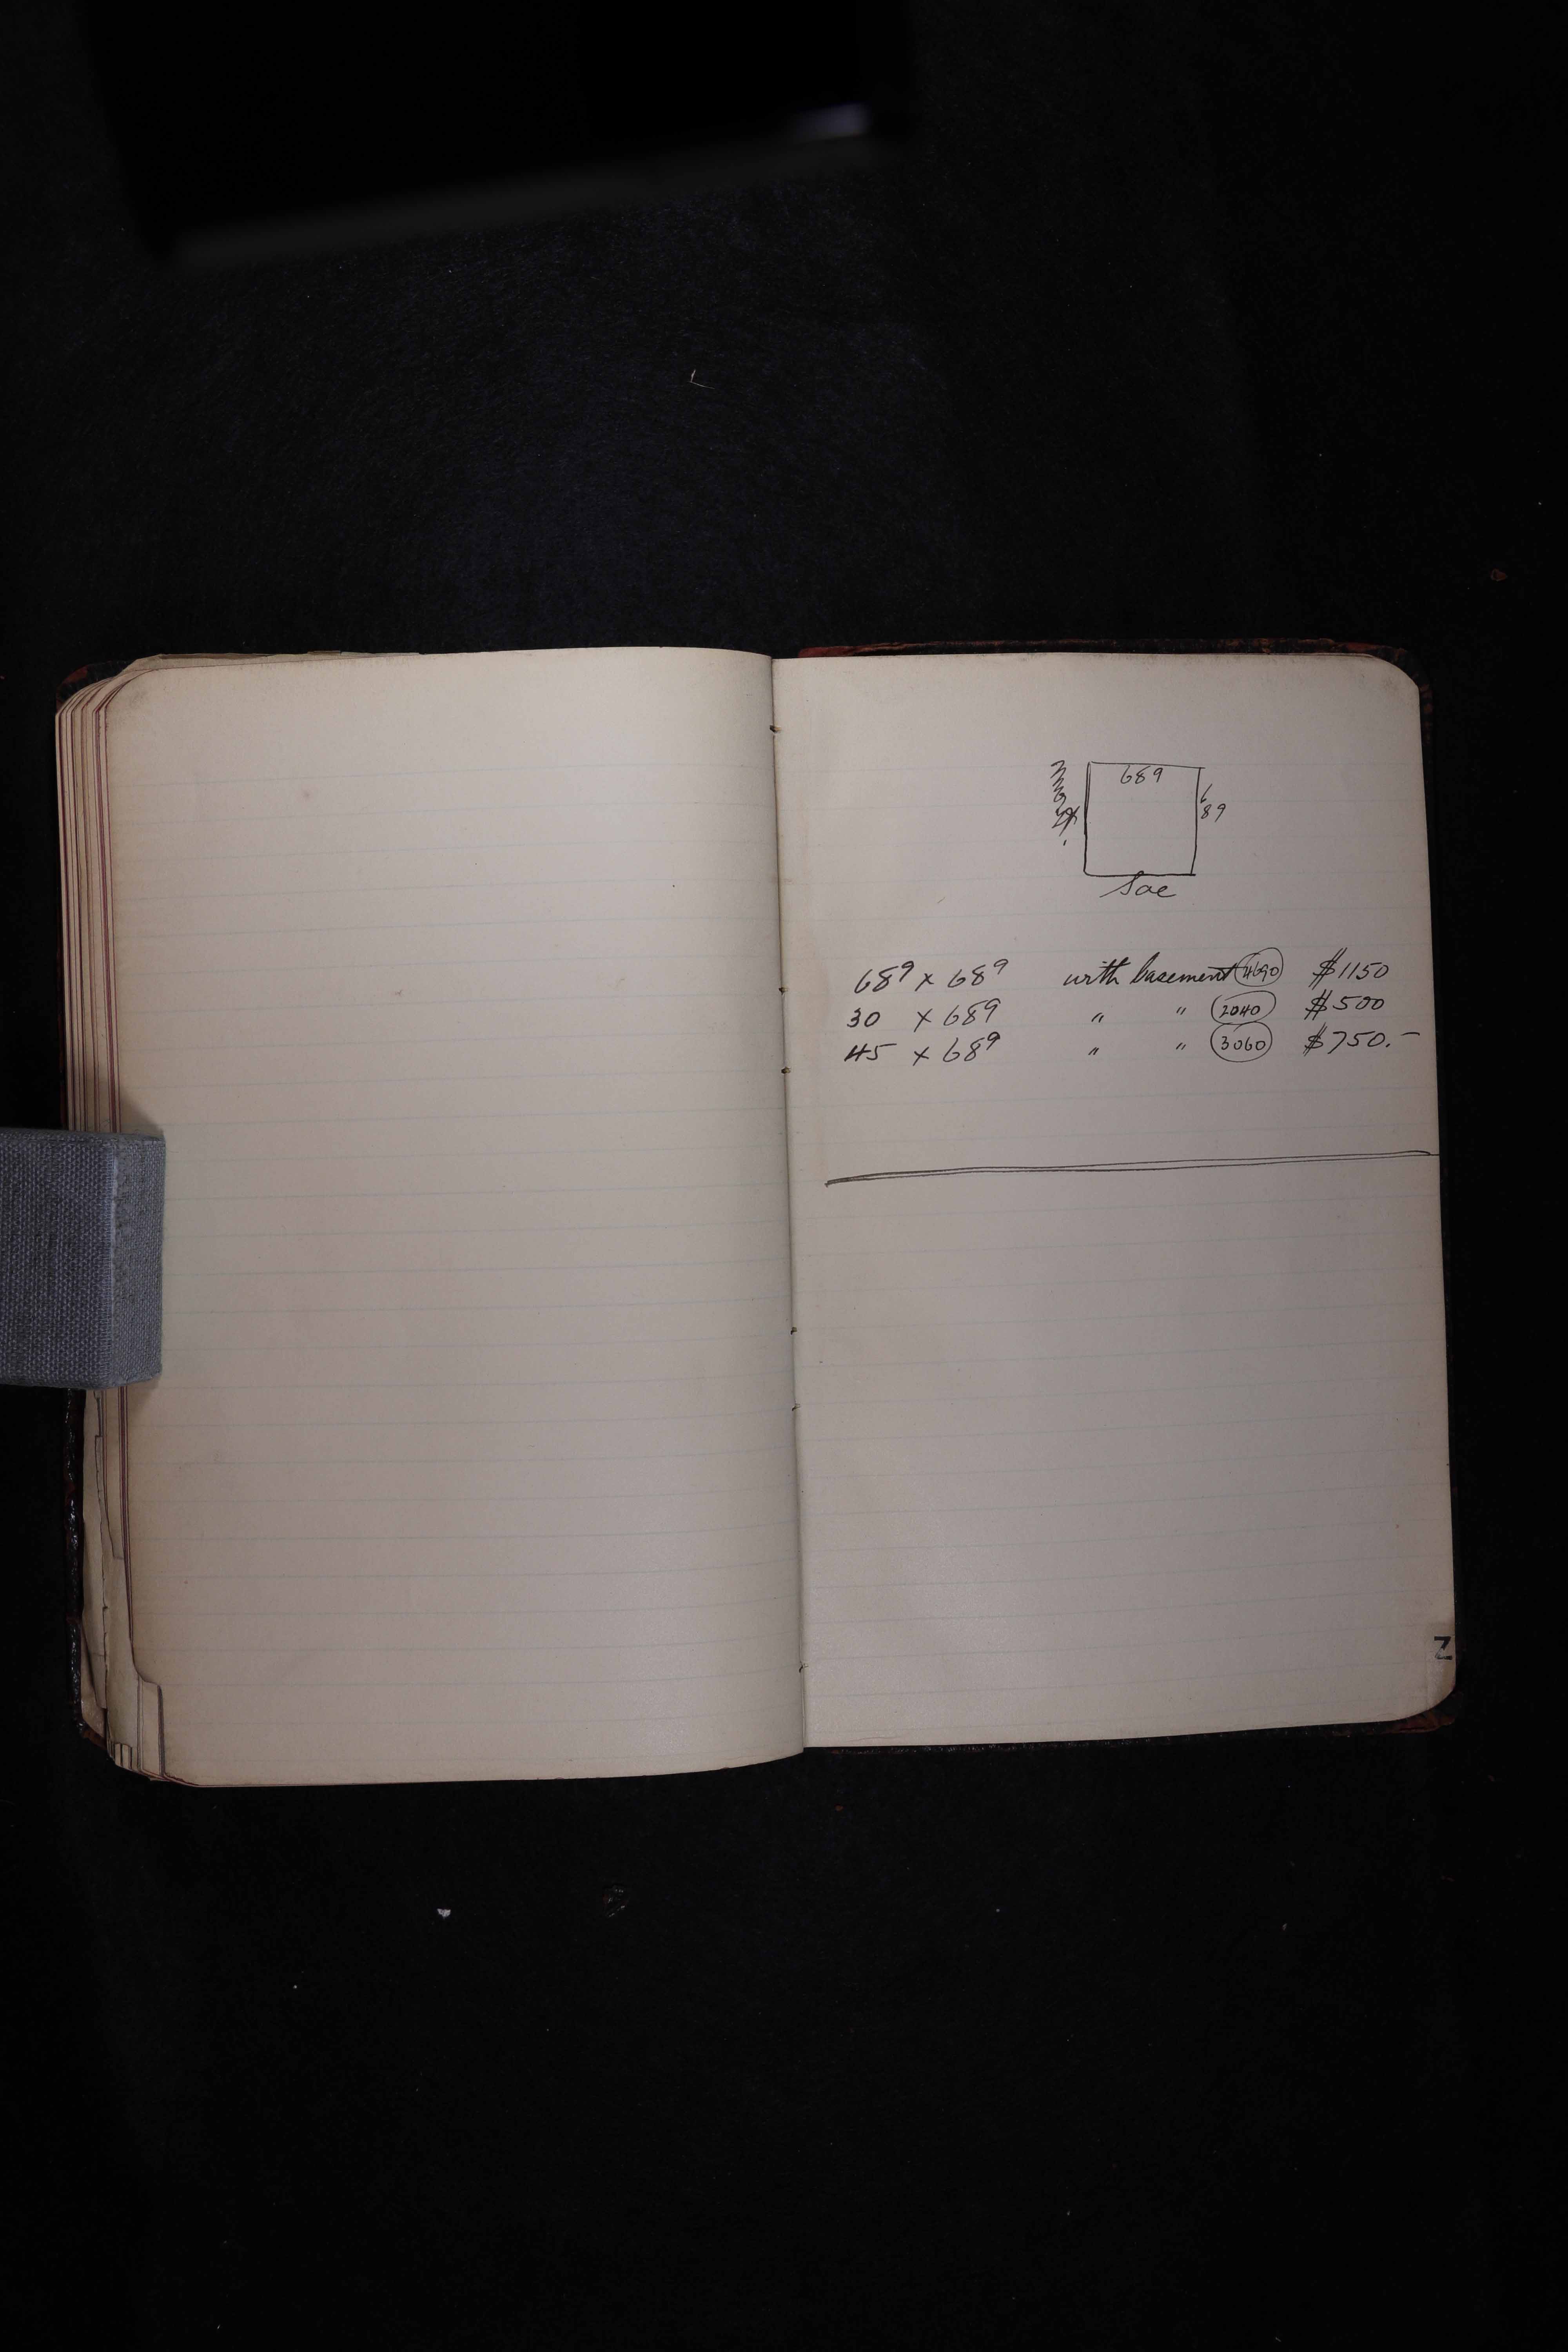 689
689
Sae
68⁹ × 68⁹ with basement 4690 $1150
30 × 68⁹ " " 2040 $500
45 × 68⁹ " " 3060 $750.-
Z